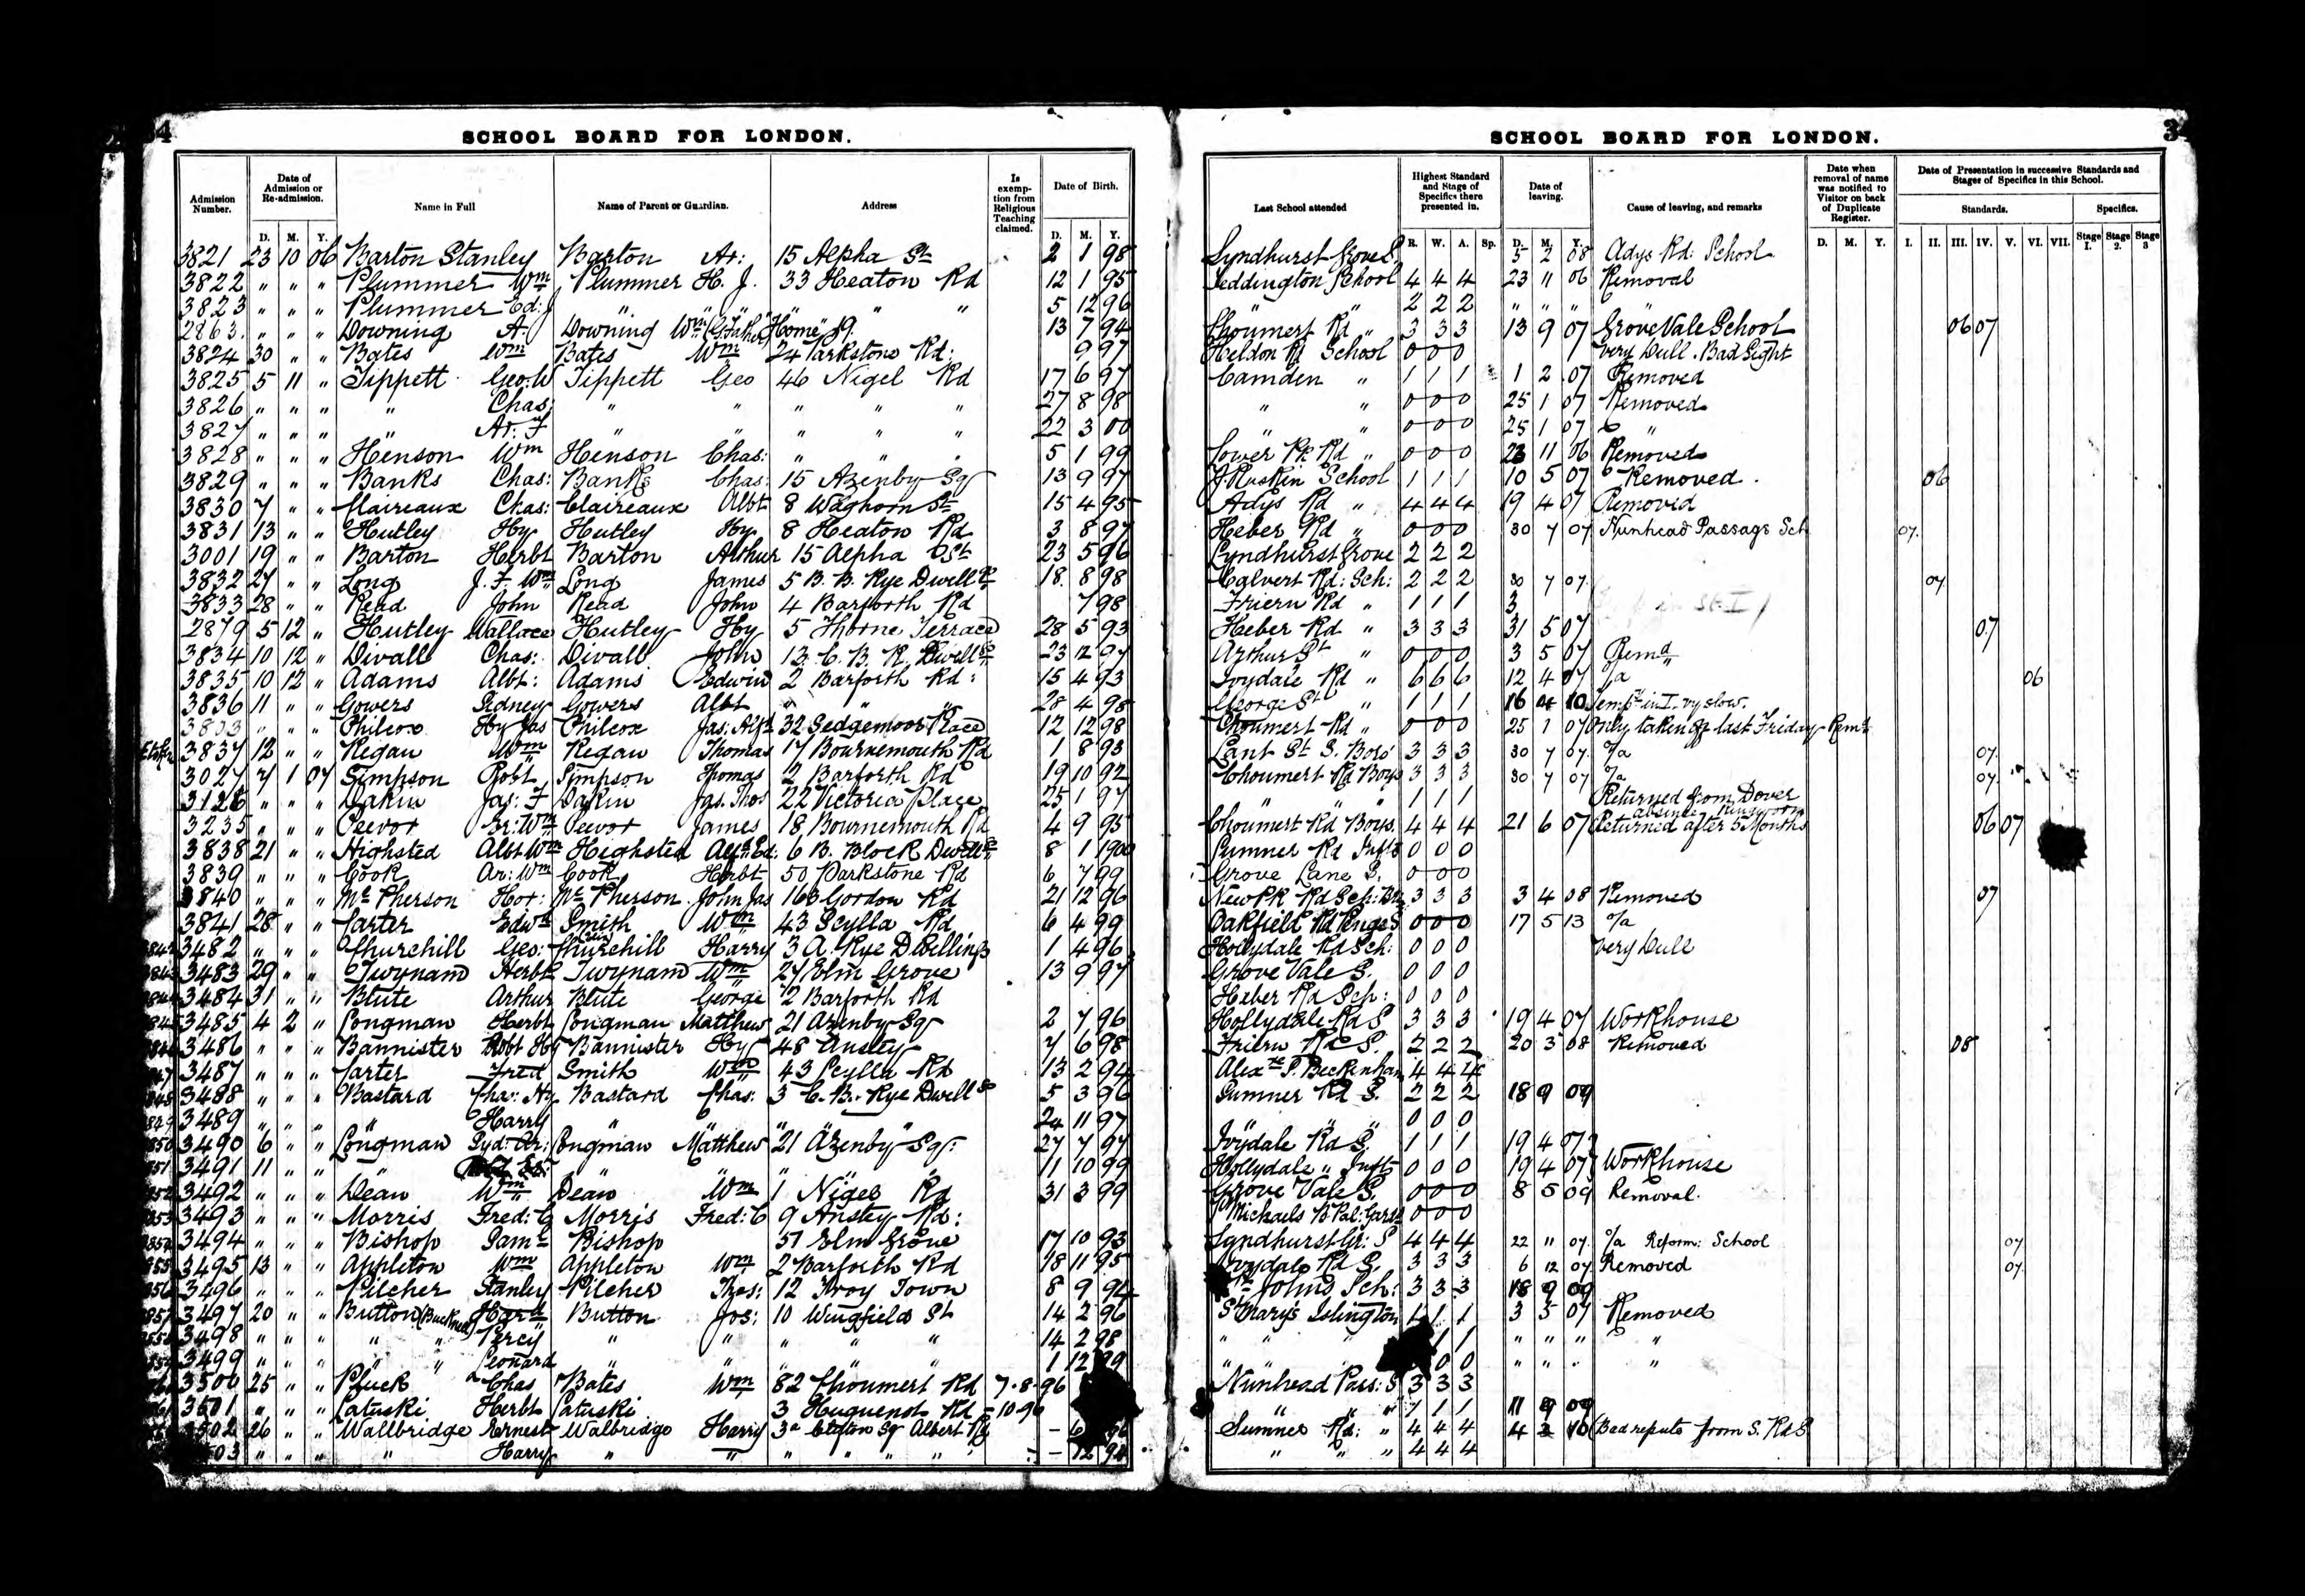 4
SCHOOL BOARD FOR LONDON.
Admission Number. Date of Admission or Re-admission. Name in Full Name of Parent or Guardian. Address Is exemption from Religious Teaching claimed. Date of Birth.
D. M. Y. D. M. Y.
3821 23 10 06 Barton Stanley Barton Ar: 15 Alpha St 2 1 98
3822 " " " Plummer Wm Plummer H. J. 33 Heaton Rd 12 1 95
3823 " " " Plummer Ed: J " " " " " 5 12 96
2863. " " " Downing A. Downing Wm (G.Father) 13 7 94
3824 30 " " Bates Wm Bates Wm 24 Parkstone Rd: 9 97
3825 5 11 " Tippett Geo: W Tippett Geo 46 Nigel Rd 17 6 97
3826 " " " " Chas: " " " " " 27 8 98
3827 " " " " Ar: F " " " " " 22 3 00
3828 " " " Henson Wm Henson Chas: " " " 5 1 99
3829 " " " Banks Chas: Banks Chas: 15 Azenby Sq 13 9 97
3830 7 " " Claireaux Chas: Claireaux Albt 8 Waghorn St 15 4 95
3831 13 " " Hutley Hy Hutley Hy 8 Heaton Rd 3 8 97
3001 19 " " Barton Herbt Barton Arthur 15 Alpha St 23 5 96
3832 27 " " Long J. F. Wm Long James 5 B. B. Rye Dwells 18. 8 98
3833 28 " " Read John Read John 4 Barforth Rd 7 98
2879 5 12 " Hutley Wallace Hutley Hy 5 Thorne Terrace 28 5 93
3834 10 12 " Divall Chas: Divall John 13. C. B. R. Dwells 23 12 97
3835 10 12 " Adams Albt: Adams Edwin 2 Barforth Rd: 15 4 93
3836 11 " " Gowers Sidney Gowers Albt " " " 28 4 98
3803 " " " Philcox Hy Jas Philcox Jas: Alfd 32 Sedgemoor Place 12 12 98
3837 12 " " Regan Wm Regan Thomas 17 Bournemouth Rd 1 8 93
3027 7 1 07 Simpson Robt Simpson Thomas 2 Barforth Rd 19 10 92
3126 " " " Dakin Jas: F Dakin Jas. Thos 22 Victoria Place 25 1 97
3235 " " " Peevor Wm Peevor James 18 Bournemouth Rd 4 9 95
3838 21 " " Highsted Albt Wm Highsted Alfd Ed: 6 B. Block Dwells 8 1 1900
3839 " " " Cook Ar: Wm Cook Herbt 50 Parkstone Rd 6 7 99
3840 " " " McPherson Hor: McPherson John Jas 163 Gordon Rd 21 12 96
3841 28 " " Carter Edwd Smith Wm 43 Scylla Rd 6 4 99
3482 " " " Churchill Geo: Churchill Harry 3 A. Rye Dwellings 1 4 96
3483 29 " " Twynam Herbt Twynam Wm 27 Elm Grove 13 9 97
3484 31 " " Blute Arthur Blute George 2 Barforth Rd
3485 4 2 " Longman Herbt Longman Matthew 21 Azenby Sq 2 7 96
3486 " " " Bannister Robt Hy Bannister Hy 48 Anstey 7 6 98
3487 " " " Carter Fred Smith Wm 43 Scylla Rd 13 2 94
3488 " " " Bastard Chas: Hy Bastard Chas: 3 C. B. Rye Dwells 5 3 96
3489 " " " " Harry " " " " " 24 11 97
3490 6 " " Longman Syd: Ar: Longman Matthew 21 Azenby Sq: 27 7 97
3491 11 " " " " " " " " 11 10 99
3492 " " " Dean Wm Dean Wm 1 Nigel Rd 31 3 99
3493 " " " Morris Fred: C Morris Fred: C 9 Anstey Rd:
3494 " " " Bishop Saml Bishop 57 Elm Grove 17 10 93
3495 13 " " Appleton Wm Appleton Wm 2 Barforth Rd 28 11 95
3496 " " " Pilcher Stanley Pilcher Thos: 12 Troy Town 8 9 94
3497 20 " " Button (Bucknell) Button Jos: 10 Wingfield St 14 2 96
3498 " " " " " Percy " " " " " 14 2 98
3499 " " " " " Leonard " " " " " 1 12 99
3500 25 " " Pluck Chas Bates Wm 82 Choumert Rd 7.8.96
3501 " " " Pataski Herbt Pataski 3 Huguenot Rd - 10 96
3502 26 " " Wallbridge Ernest Walbridge Harry 3a Clifton Sq Albert Rd - 6
" " " " Harry " " " " " " - 12 94
SCHOOL BOARD FOR LONDON.
3
Last School attended Highest Standard and Stage of Specifics there presented in. Date of leaving. Cause of leaving, and remarks Date when removal of name was notified to Visitor on back of Duplicate Register. Date of Presentation in successive Standards and Stages of Specifics in this School.
Standards. Specifics.
R. W. A. Sp. D. M. Y. D. M. Y. I. II. III. IV. V. VI. VII. Stage 1. Stage 2. Stage 3
Lyndhurst Grove S. 5 2 08 Adys Rd: School
Teddington School 4 4 4 23 11 06 Removal
" " 2 2 2 " " "
Choumert Rd " 3 3 3 13 9 07 Grove Vale School 06 07
Heldon Rd School 0 0 0 very Dull. Bad Sight
Camden " 1 1 1 1 2 07 Removed
" " 0 0 0 25 1 07 Removed
" " 0 0 0 25 1 07 "
Lower Pk Rd " 0 0 0 23 11 06 Removed
J. Ruskin School 1 1 1 10 5 07 Removed. 06
Adys Rd " 4 4 4 19 4 07 Removed
Heber Rd " 0 0 0 30 7 07 Nunhead Passage Sch 07.
Lyndhurst Grove 2 2 2
Calvert Rd: Sch: 2 2 2 30 7 07. 07
Friern Rd " 1 1 1 3
Heber Rd " 3 3 3 31 5 07 07
Arthur St " 0 0 0 3 5 07 Remd
Ivydale Rd " 6 6 6 12 4 07 o/a 06
George St " 1 1 1 16 4 10 in I. vy slow.
Choumert Rd " 0 0 0 25 1 07 Only taken off last Friday Remd
Lant St S. Boro' 3 3 3 30 7 07. o/a 07.
Choumert Rd Boys 3 3 3 30 7 07 o/a 07.
" " " 1 1 1 Returned from Dover
Choumert Rd Boys. 4 4 4 21 6 07 Returned after 5 Months absence Ringworm 06 07
Sumner Rd Infts 0 0 0
Grove Lane S. 0 0 0
New Pk Rd Sch: 3 3 3 3 4 08 Removed 07
Oakfield Rd Penge S 0 0 0 17 5 13 o/a
Hollydale Rd Sch: 0 0 0 very Dull
Grove Vale S. 0 0 0
Heber Rd Sch: 0 0 0
Hollydale Rd S 3 3 3 19 4 07 Workhouse
Friern Rd S. 2 2 2 20 3 08 Removed 08
Beckenham 4 4 4
Sumner Rd S. 2 2 2 18 9 09
" " " 0 0 0
Ivydale Rd S. 1 1 1 19 4 07
Hollydale " Infts 0 0 0 19 4 07 Workhouse
Grove Vale S. 0 0 0 8 5 09 Removal.
St Michaels 0 0 0
Lyndhurst Gr: S 4 4 4 22 11 07. o/a Reform: School 07
Ivydale Rd S. 3 3 3 6 12 07 Removed 07.
St Johns Sch: 3 3 3 18 9 09
St Mary's Islington 1 1 1 3 5 07 Removed
" " " 1 1 " " " "
" " " 0 0 " " " "
Nunhead Pass: S 3 3 3
" " " 1 1 1 11 9 09
Sumner Rd: " 4 4 4 4 3 10 Bad repute from S. Rd S
" " " 4 4 4